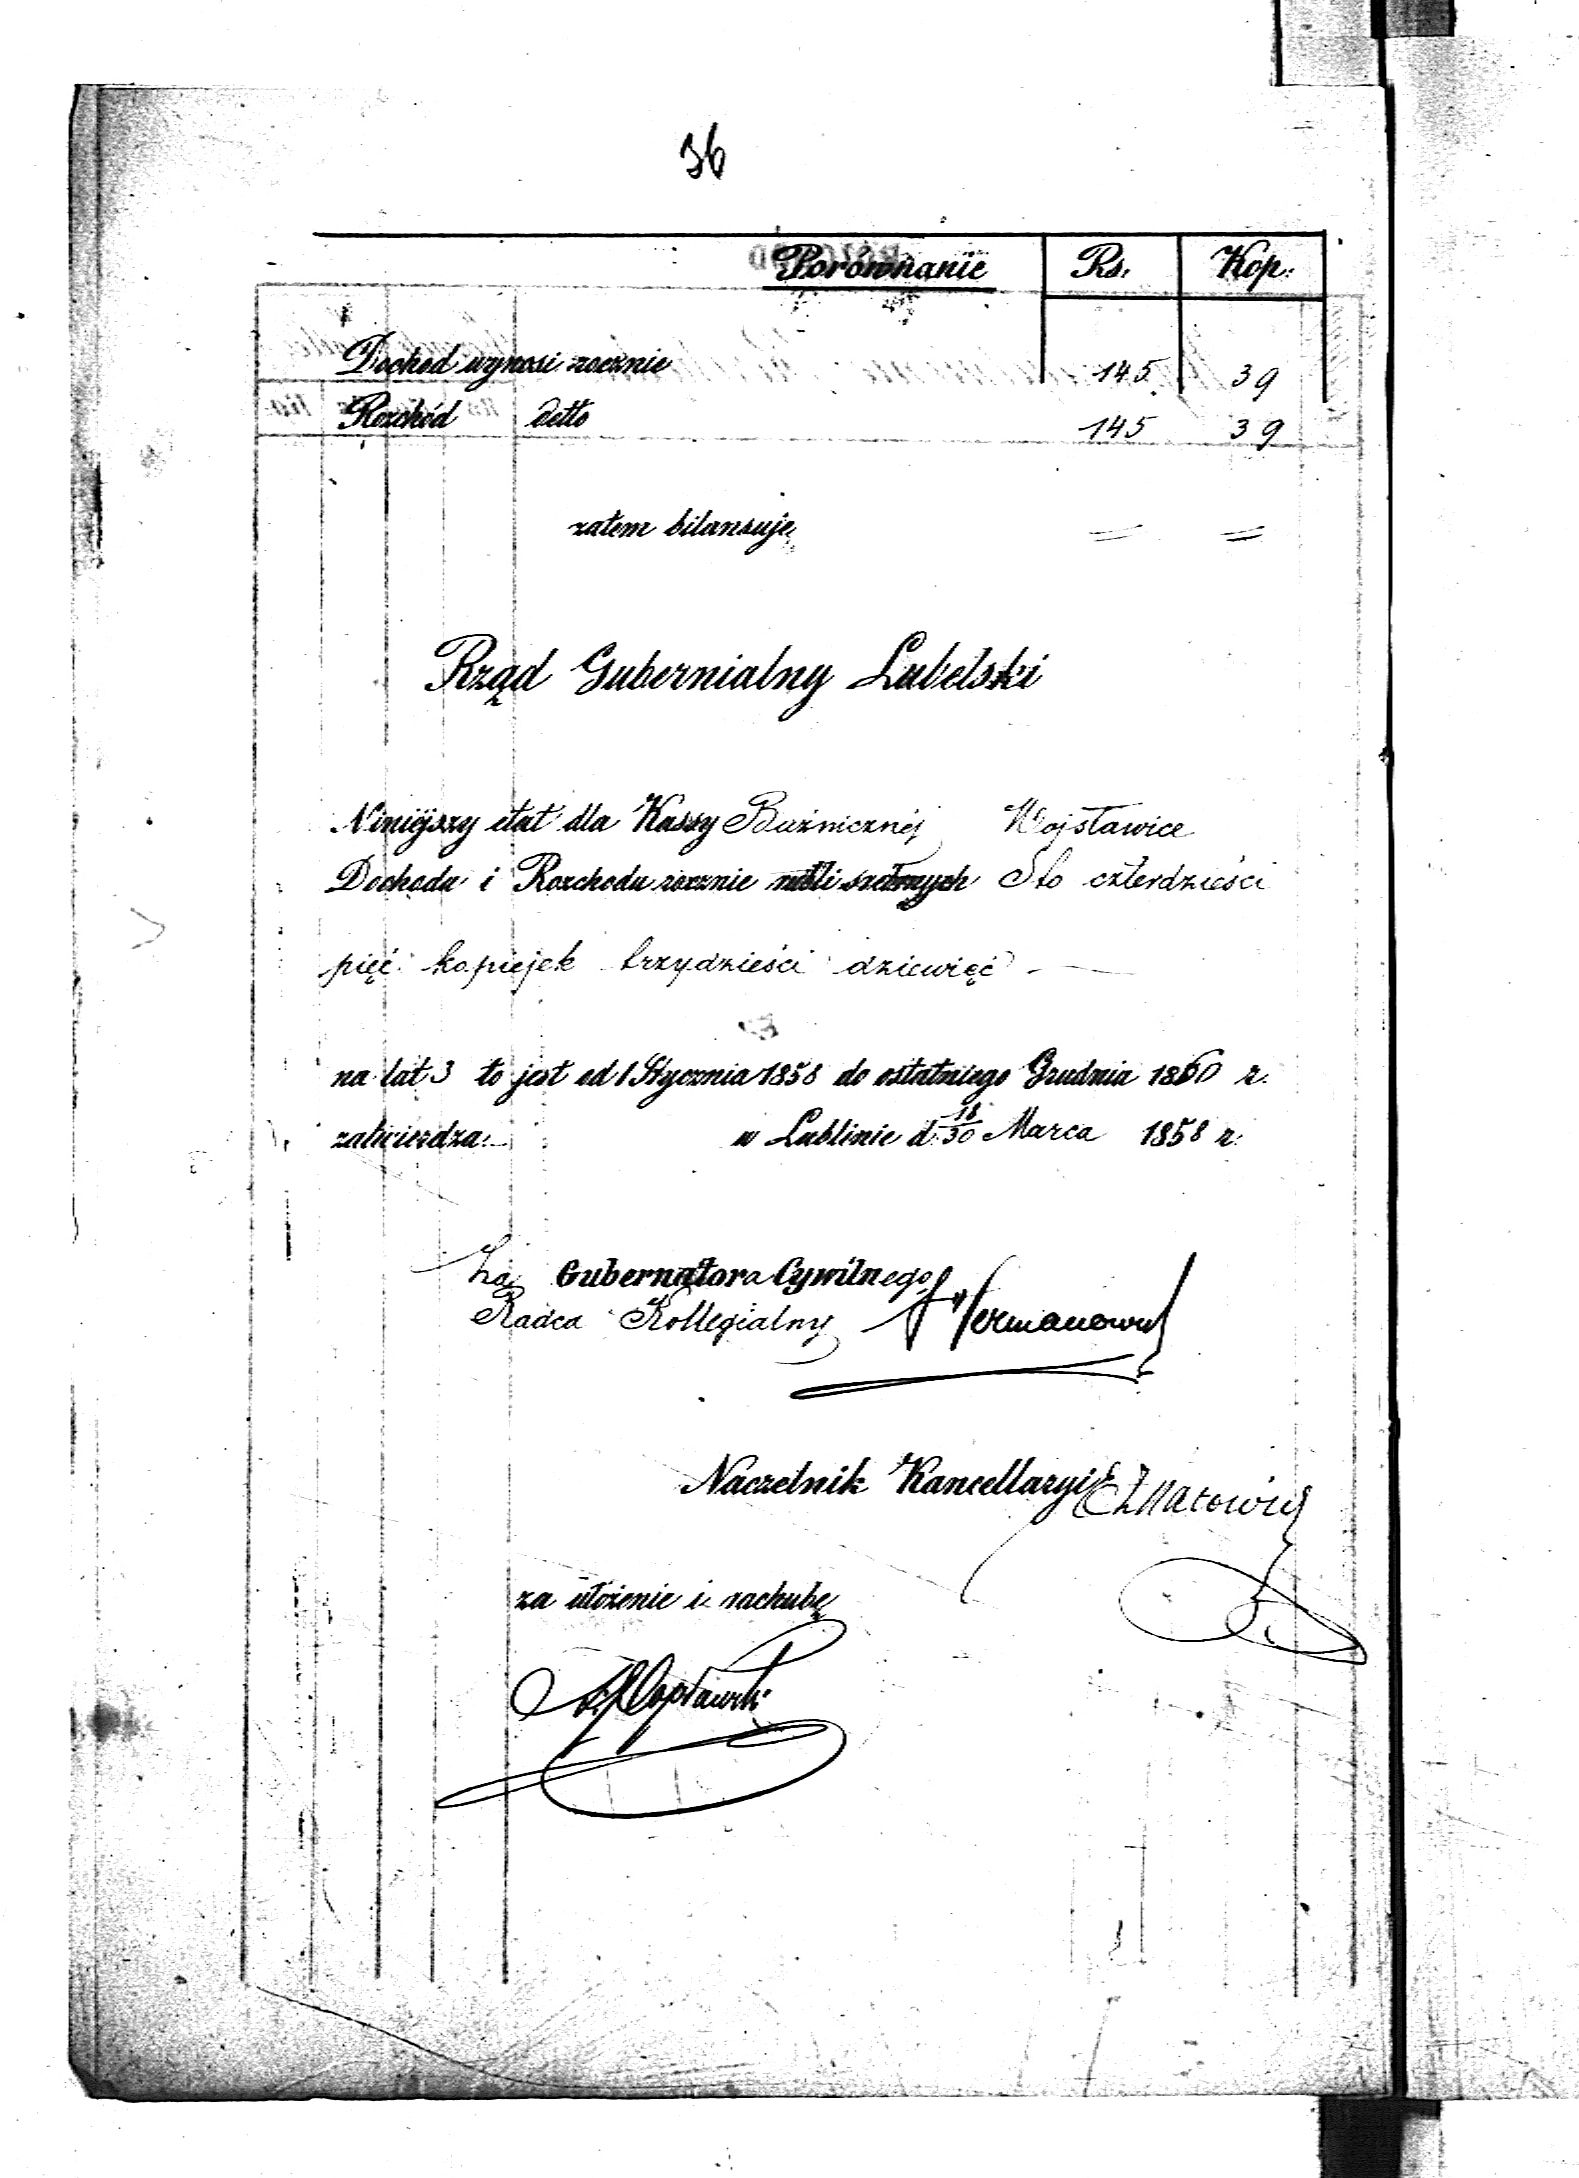 36
Porównanie Rs. Kop.
Dochod wynosi rocznie 145 39
Rozchód detto 145 39
zatem bilansuje = =
Rząd Gubernialny Lubelski
Niniejszy etat dla Kassy Bużnicznéj Wojsławice
Dochodu i Rozchodu rocznie rubli srebrnych Sto czterdzieści
pięć kopiejek trzydzieści dziewięć —
na lat 3 to jest od 1 Stycznia 1858 do ostatniego Grudnia 1860 r.
zatwierdza. w Lublinie d. 18/30 Marca 1858 r.
Za Gubernatora Cywilnego
Radca Kollegialny
Naczelnik Kancellaryi
za ułożenie i rachubę